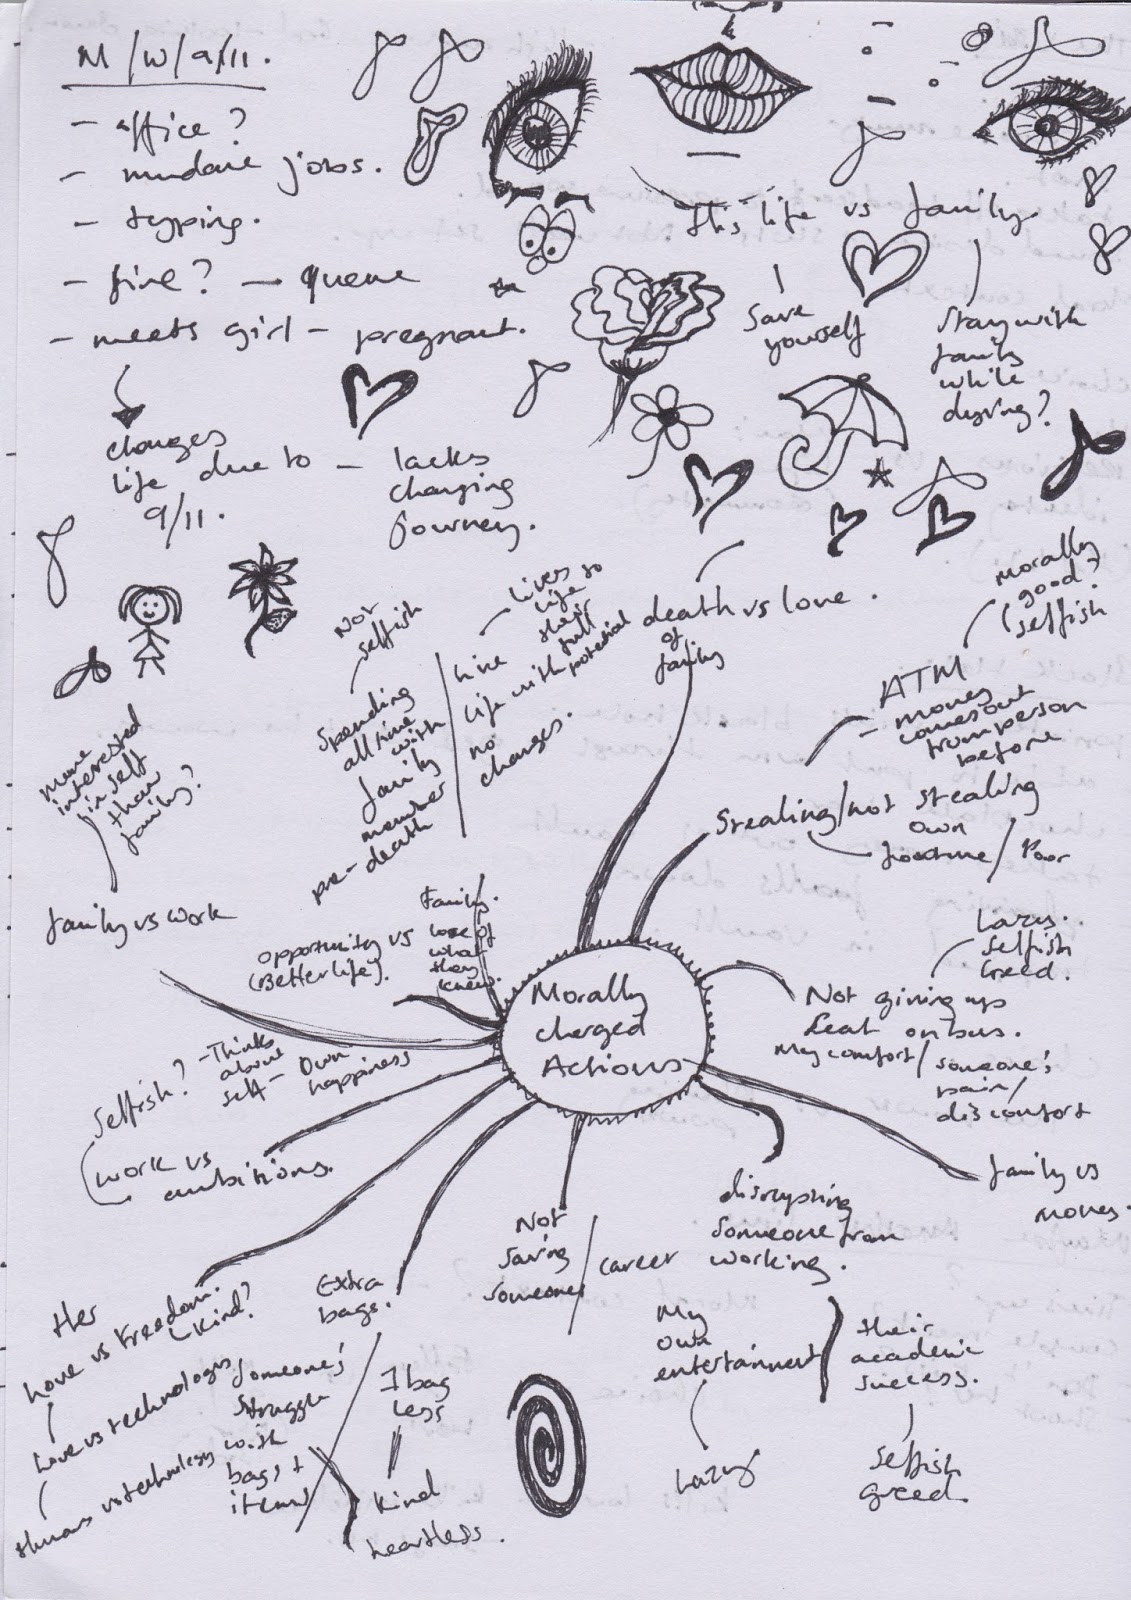 M/W/9/11.
- office?
- mundane jobs.
- typing.
- fire? - queue
- meets girl - pregnant.
changes
life due to - lacks
9/11.
changing
journey.
this life vs family.
save
yourself
stay with
family
while
dying?
death vs love.
of
family
Lives
life to
their
full
potential
live
life with
no
changes.
Not
selfish
Spending
all time
with
family
member
pre-
death
morally
good?
selfish
ATM
- money
comes out
from person
before
Stealing/not stealing
own
fortune/Poor
more
interested
in self
than
family?
family vs work
opportunity vs
(Better life).
Family.
love of
what
they
knew.
Morally
charged
Actions
Lazy.
Selfish
Greed.
Not giving up
seat on bus.
My comfort/someone's
pain/
discomfort
family vs
money.
Selfish?
- Thinks
about
self - Own
happiness
work vs
ambitions.
Her
Love vs Freedom.
Kind?
Love vs technology
Human vs technology
Extra
bags.
Someone's
struggle
with
bags +
items
1 bag
less
kind
heartless.
Not
saving
someone/career
disrupting
someone from
working.
My
own
entertainment
their
academic
success.
Lazy
Selfish
greed.